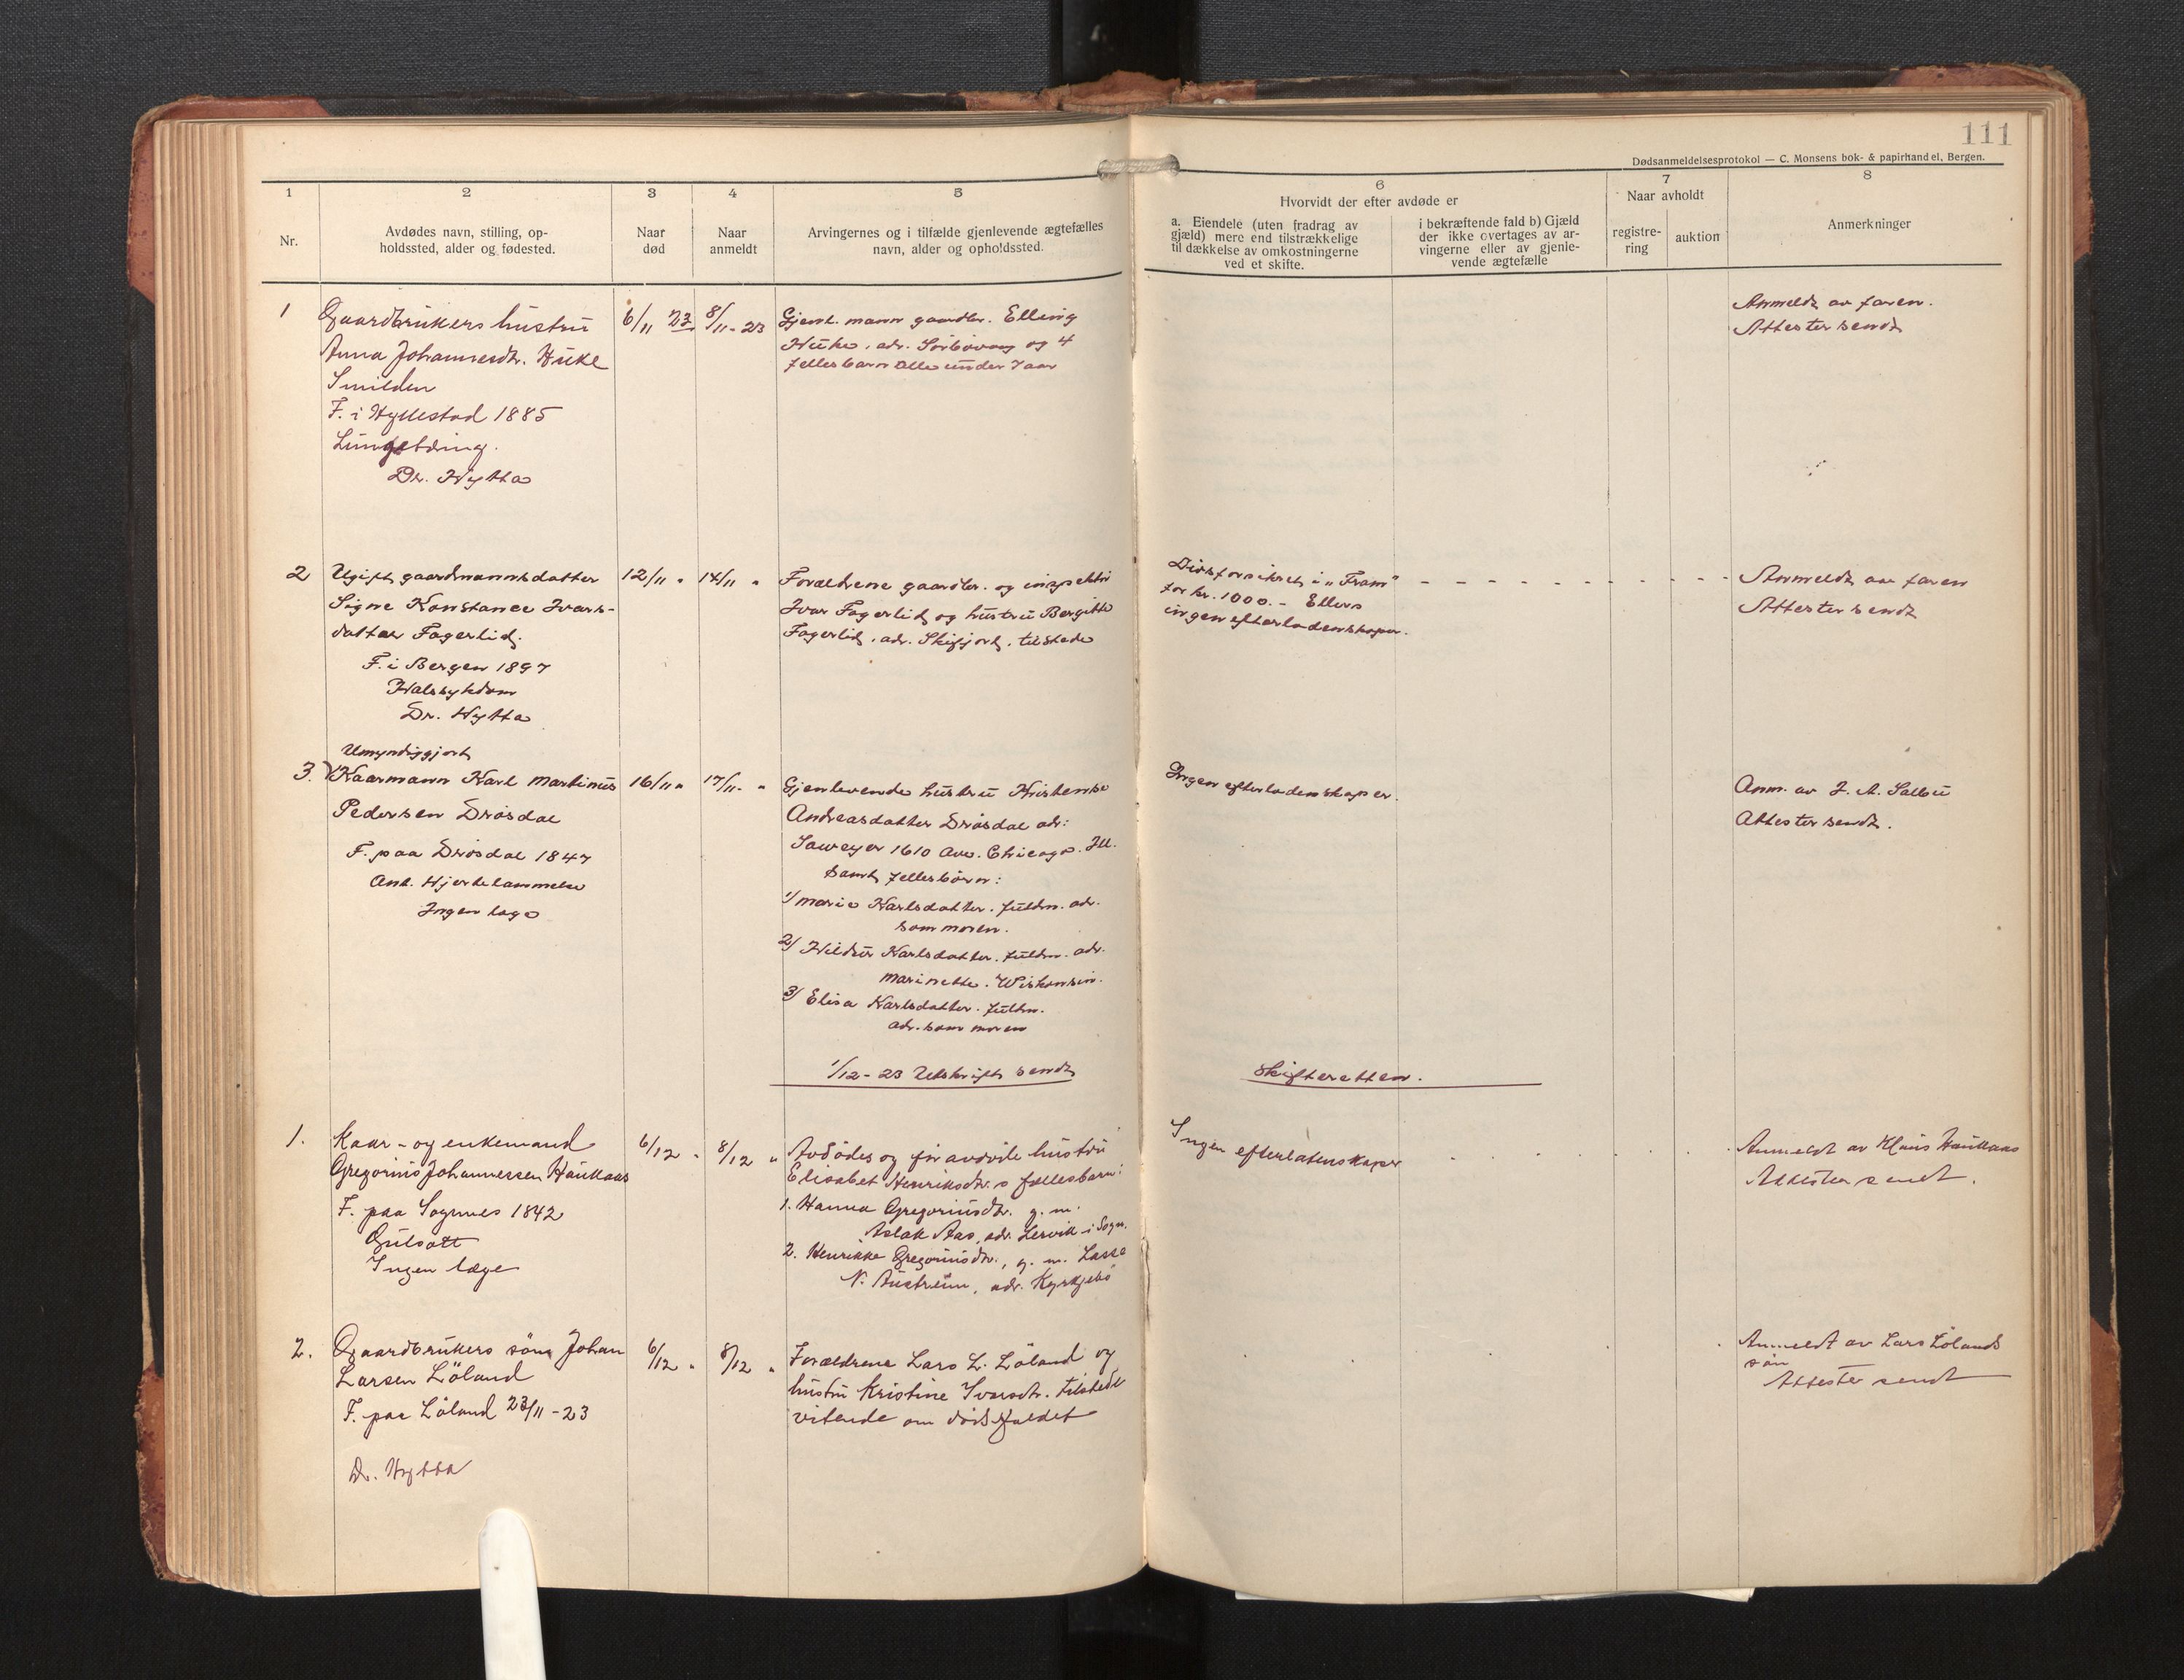 111
Dødsanmeldelsesprotokol — C. Monsens bok- & papirhandel, Bergen.
1
2
3
4
5
6
7
8
Nr.
Avdødes navn, stilling, op-
holdssted, alder og fødested.
Naar
død
Naar
anmeldt
Arvingernes og i tilfælde gjenlevende ægtefælles
navn, alder og opholdssted.
Hvorvidt der efter avdøde er
a. Eiendele (uten fradrag av
gjæld) mere end tilstrækkelige
til dækkelse av omkostningerne
ved et skifte.
i bekræftende fald b) Gjæld
der ikke overtages av ar-
vingerne eller av gjenle-
vende ægtefælle
Naar avholdt
registre-
ring
auktion
Anmerkninger
1
Gaardbrukers hustru
Anna Johannesdtr. Huke
Smilden
F. i Hyllestad 1885
Dr. Hytta
6/11 23
8/11-23
Gjenl. mann gaardbr. Elling
Huke, adr. Sörbövaag og 4
fellesbarn alle under 7 aar
Anmeldt av faren.
Attester sendt
2
Ugift gaardmannsdatter
Signe Konstance Ivars-
datter Fagerlid.
F. i Bergen 1897
Halssykdom
Dr. Hytta
12/11 "
14/11 "
Foreldrene gaardbr. og inspektör
Ivar Fagerlid og hustru Bergitte
Fagerlid, adr. Skifjord, tilstede
Livsforsikret i "Fram"
for kr. 1000.- Ellers
ingen efterladenskaper.
Anmeldt av faren
Attester sendt
Umyndiggjort
3.
Kaarmann Karl Martinus
Pedersen Drösdal
F. paa Drösdal 1847
Ant. Hjertelammelse
Ingen læge
16/11 "
17/11- "
Gjenlevende hustru Kristense
Andreasdatter Drösdal adr:
Saweyer 1610 Ave. Chicago. Ill.
Samt fellesbörn:
1/ Marie Karlsdatter. fuldm. adr.
som moren.
2/ Hildur Karlsdatter. fuldm. adr.
Marinette. Wiskonsin.
3/ Elisa Karlsdatter. fuldm.
adr. som moren
Ingen efterladenskaper.
Anm. av J. A. Salbu
Attester sendt.
1/12-23 Utskrift sendt
skifteretten.
1.
Kaar- og enkemand
Gregorius Johannessen Haukaas
F. paa Sognnes 1842
Gulsott
Ingen læge
6/12 "
8/12 "
Avdödes og för avdöde hustru
Elisabet Henriksdtr.s fellesbarn:
1. Hanna Gregoriusdtr. g. m.
Aslak Aas, adr. Lervik i Sogn.
2. Henrikke Gregoriusdtr., g. m. Lasse
N. Austreim, adr. Kyrkjebö
Ingen efterlatenskaper
Anmeldt av Klaus Haukaas
Attester sendt.
2.
Gaardbrukers sön Johan
Larsen Löland
F. paa Löland 23/11-23
Dr. Hytta
6/12 "
8/12 "
Foreldrene Lars L. Löland og
hustru Kristine Ivarsdtr. tilstede
vitende om dödsfaldet
Anmeldt av Lars Lölands
sön
Attester sendt